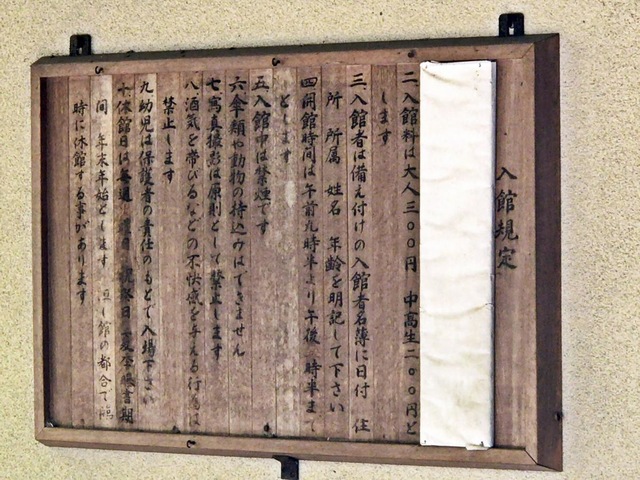 入館規定
二 入館料は大人三〇〇円 中高生二〇〇円と
します
三 入館者は備え付けの入館者名簿に日付 住
所 所属 姓名 年齢を明記して下さい
四 開館時間は午前九時半より午後 時半まで
とします
五 入館中は禁煙です
六 傘類や動物の持込みはできません
七 写真撮影は原則として禁止します
八 酒気を帯びるなどの不快感を与える行為は
禁止します
九 幼児は保護者の責任のもとで入場下さい
十 休館日は毎週 曜日 祝祭日 夏 期
間 年末年始とします 但し館の都合で臨
時に休館する事があります